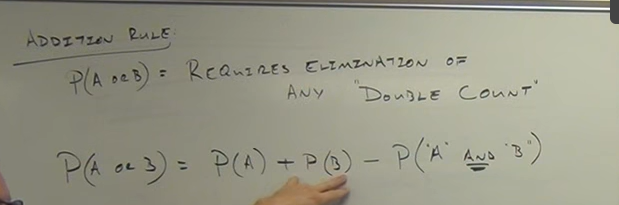 ADDITION RULE:
P(A OR B) = REQUIRES ELIMINATION OF
ANY "DOUBLE COUNT"
P(A OR B) = P(A) + P(B) - P("A" AND "B")